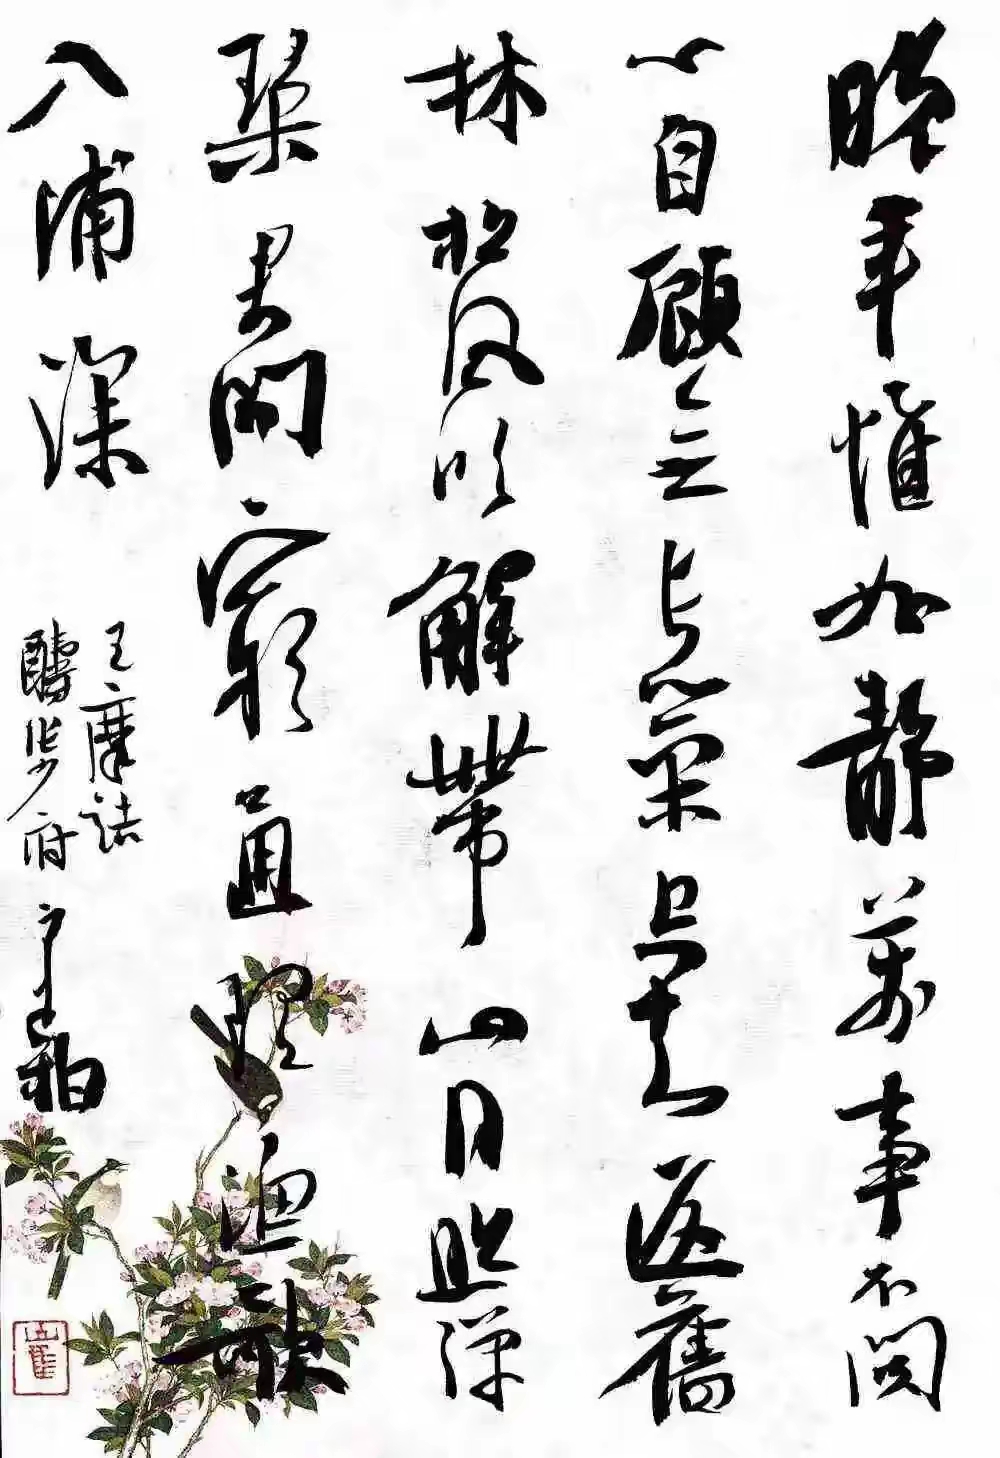 晚年惟好靜萬事不関
心自顧無長策空知返舊
林松風吹解帶山月照彈
琴君問窮通理漁歌
入浦深
王摩詰
醻張少府
崔